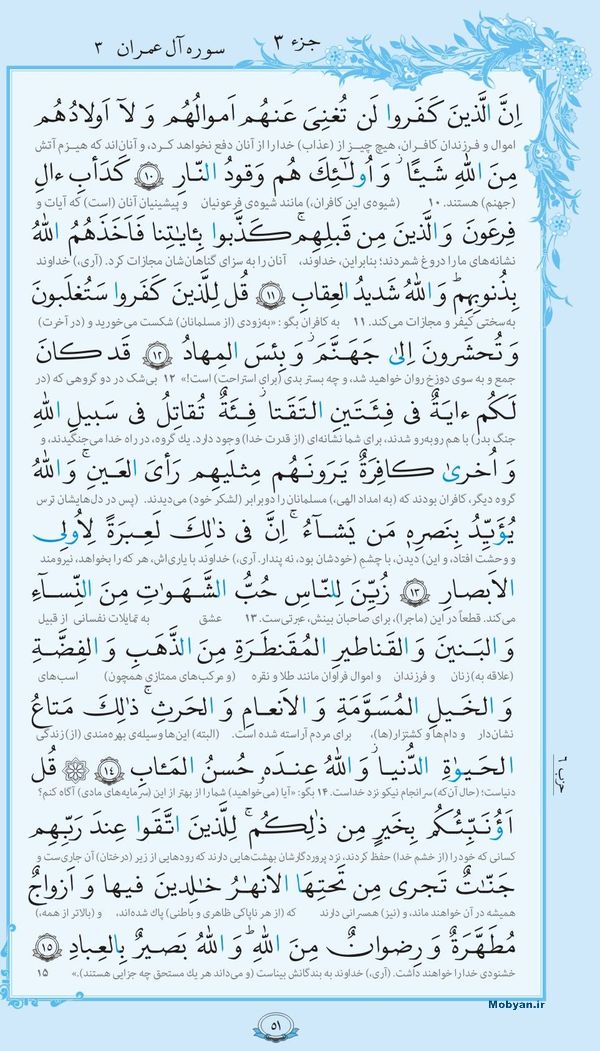 جزء ۳
سوره آل عمران ۳
اِنَّ الَّذینَ کَفَروا لَن تُغنِیَ عَنهُم اَموالُهُم وَ لآ اَولادُهُم
اموال و فرزندان کافران، هیچ چیز از (عذاب) خدا را از آنان دفع نخواهد کرد، و آنان‌اند که هیزم آتش
مِنَ اللهِ شَیئًا وَ اُولٰئِكَ هُم وَقودُ النّارِ ۱۰ کَدَأبِ ءالِ
(جهنم) هستند. ۱۰ (شیوه‌ی این کافران،) مانند شیوه‌ی فرعونیان و پیشینیان آنان (است) که آیات و
فِرعَونَ وَ الَّذینَ مِن قَبلِهِم کَذَّبوا بِئایٰتِنا فَاَخَذَهُمُ اللهُ
نشانه‌های ما را دروغ شمردند؛ بنابراین، خداوند، آنان را به سزای گناهان‌شان مجازات کرد. (آری،) خداوند
بِذُنوبِهِم وَ اللهُ شَدیدُ العِقابِ ۱۱ قُل لِلَّذینَ کَفَروا سَتُغلَبونَ
به‌سختی کیفر و مجازات می‌کند. ۱۱ به کافران بگو: «به‌زودی (از مسلمانان) شکست می‌خورید و (در آخرت)
وَ تُحشَرونَ اِلیٰ جَهَنَّمَ وَ بِئسَ المِهادُ ۱۲ قَد کانَ
جمع و به سوی دوزخ روان خواهید شد، و چه بستر بدی (برای استراحت) است!» ۱۲ بی‌شک در دو گروهی که (در
لَکُم ءایَةٌ فی فِئَتَینِ التَقَتا فِئَةٌ تُقاتِلُ فی سَبیلِ اللهِ
جنگ بدر) با هم روبه‌رو شدند، برای شما نشانه‌ای (از قدرت خدا) وجود دارد. یك گروه، در راه خدا می‌جنگیدند، و
وَ اُخریٰ کافِرَةٌ یَرَونَهُم مِثلَیهِم رَأیَ العَینِ وَ اللهُ
گروه دیگر، کافران بودند که (به امداد الهی،) مسلمانان را دوبرابر (لشکر خود) می‌دیدند. (پس در دل‌هایشان ترس
یُؤَیِّدُ بِنَصرِهِ مَن یَشآءُ اِنَّ فی ذٰلِكَ لَعِبرَةً لِاُولِی
و وحشت افتاد، و این) دیدن، با چشم (خودشان بود، نه پندار. آری،) خداوند با یاری‌اش، هر که را بخواهد، نیرومند
الاَبصارِ ۱۳ زُیِّنَ لِلنّاسِ حُبُّ الشَّهَوٰتِ مِنَ النِّسآءِ
می‌کند. قطعاً در این (ماجرا)، برای صاحبان بینش، عبرتی‌ست. ۱۳ عشق به تمایلات نفسانی از قبیل
وَ البَنینَ وَ القَناطیرِ المُقَنطَرَةِ مِنَ الذَّهَبِ وَ الفِضَّةِ
(علاقه به) زنان و فرزندان و اموال فراوان مانند طلا و نقره (و مرکب‌های ممتازی همچون) اسب‌های
وَ الخَیلِ المُسَوَّمَةِ وَ الاَنعامِ وَ الحَرثِ ذٰلِكَ مَتاعُ
نشان‌دار و دام‌ها و کشتزار(ها)، برای مردم آراسته شده است. (البته) این‌ها وسیله‌ی بهره‌مندی (از) زندگی
الحَیوٰةِ الدُّنیا وَ اللهُ عِندَهُ حُسنُ المَئابِ ۱۴ قُل
دنیاست؛ (حال آن‌که) سرانجام نیکو نزد خداست. ۱۴ بگو: «آیا (می‌خواهید) شما را از بهتر از این (سرمایه‌های مادی) آگاه کنم؟
اَؤُنَبِّئُکُم بِخَیرٍ مِن ذٰلِکُم لِلَّذینَ اتَّقَوا عِندَ رَبِّهِم
کسانی که خود را (از خشم خدا) حفظ کردند، نزد پروردگارشان بهشت‌هایی دارند که رودهایی از زیر (درختان) آن جاری‌ست و
جَنّاتٌ تَجری مِن تَحتِهَا الاَنهارُ خالِدینَ فیها وَ اَزواجٌ
همیشه در آن خواهند ماند، و (نیز) همسرانی دارند که (از هر ناپاکی ظاهری و باطنی) پاك شده‌اند، و (بالاتر از همه،)
مُطَهَّرَةٌ وَ رِضوانٌ مِنَ اللهِ وَ اللهُ بَصیرٌ بِالعِبادِ ۱۵
خشنودی خدا را خواهند داشت. (آری،) خداوند به بندگانش بیناست (و می‌داند هر یك مستحق چه جزایی هستند).» ۱۵
حزب ۶
Mobyan.ir
۵۱